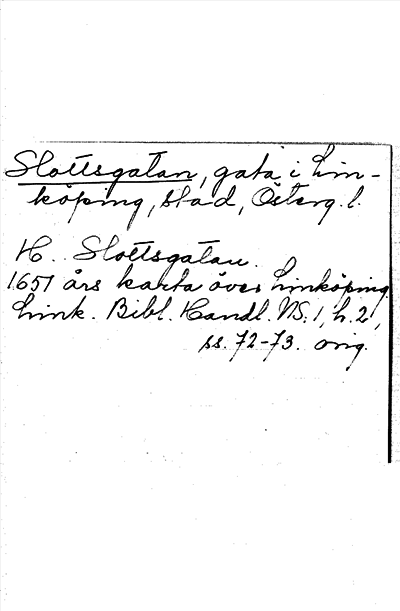 Slottsgatan, gata i Lin-
köping, stad, Österg. l.
H. Slottsgatan.
1651 års karta över Linköping.
Link. Bibl. Handl. NS. 1, h. 2,
ss. 72-73. orig.